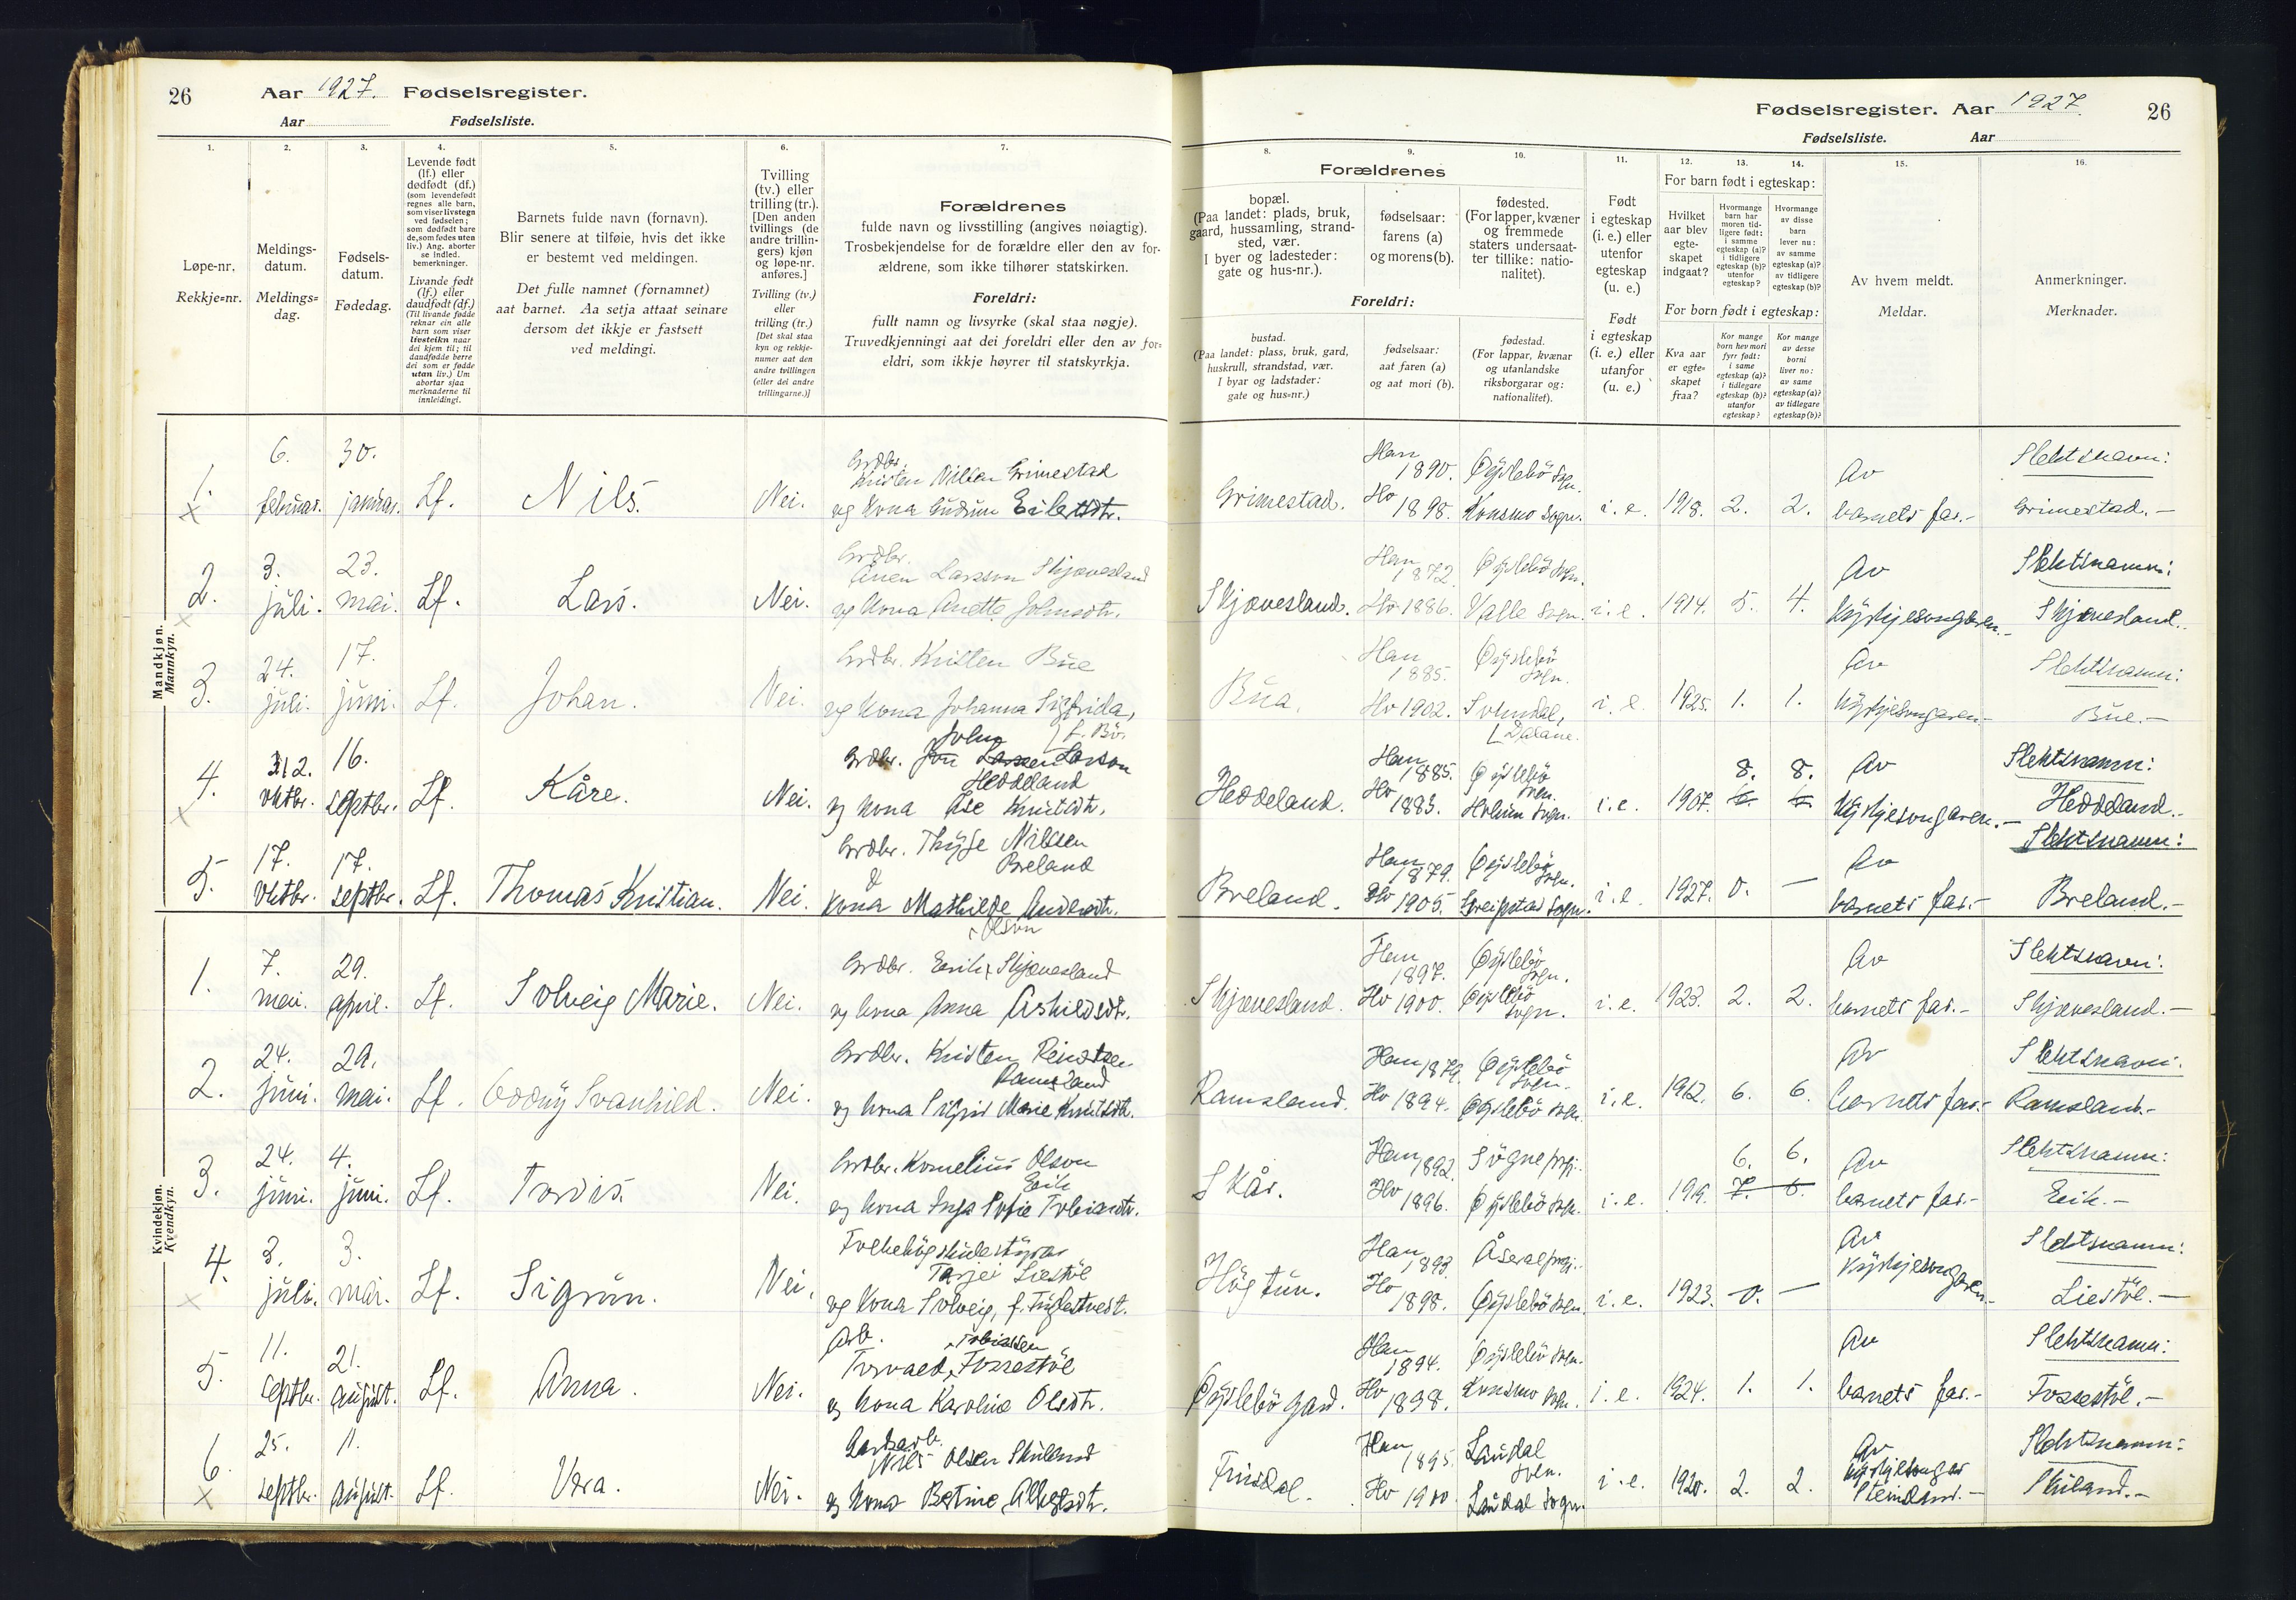 26 Aar 1927. Fødselsregister.
Aar Fødselsliste.
1. 2. 3. 4. 5. 6. 7.
Løpe-nr.
Rekkje=nr.
Meldings-
datum.
Meldings=
dag.
Fødsels-
datum.
Fødedag.
Levende født
(lf.) eller
dødfødt (df.)
(som levendefødt
regnes alle barn,
som viser livstegn
ved fødselen;
som dødfødt bare
de, som fødes uten
liv.) Ang. aborter
se indled.
bemerkninger.
Livande født
(lf.) eller
daudfødt (df.)
(Til livande fødde
reknar ein alle
barn som viser
livsteikn naar
dei kjem til; til
daudfødde berre
dei som er fødde
utan liv.) Um
abortar sjaa
merknaderne til
innleidingi.
Barnets fulde navn (fornavn).
Blir senere at tilføie, hvis det ikke
er bestemt ved meldingen.
Det fulle namnet (fornamnet)
aat barnet. Aa setja attaat seinare
dersom det ikkje er fastsett
ved meldingi.
Tvilling
(tv.) eller
trilling (tr.).
[Den anden
tvillings (de
andre trillin-
gers) kjøn
og løpe-nr.
anføres.]
Tvilling (tv.)
eller
trilling (tr.)
[Det skal staa
kyn og rekkje-
numer aat den
andre tvillingen
(eller dei andre
trillingarne.)]
Forældrenes
fulde navn og livsstilling (angives nøiagtig).
Trosbekjendelse for de forældre eller den av for-
ældrene, som ikke tilhører statskirken.
Foreldri:
fullt namn og livsyrke (skal staa nøgje).
Truvedkjenningi aat dei foreldri eller den av for=
eldri, som ikkje høyrer til statskyrkja.
Mandkjøn.
Mannkyn.
1. 6. februar. 30. januar. Lf. Nils. Nei.
Grdbr.
Kristen Nilsen Grimestad
og kona Gudrun Eilertsdtr.
2. 3. juli. 23. mai. Lf. Lars. Nei.
Grdbr.
Ånen Larsson Skjævesland
og kona Anette Johnsdtr.
3. 24. juli. 17. juni. Lf. Johan. Nei.
Grdbr. Kristen Bue
og kona Johanna Sigfrida,
f. Bö.
4. 12. oktbr. 16. septbr. Lf. Kåre. Nei.
John
Grdbr. Jon Larsen Larson
Heddeland
og kona Åse Knutsdtr.
5. 17. oktbr. 17. septbr. Lf. Thomas Kristian. Nei.
Grdbr. Thyge Nilssen
Breland
&
kona Mathilde Andersdtr.
Kvindekjøn.
Kvendkyn.
1. 7. mai. 29. april. Lf. Solveig Marie. Nei.
Olson
Grdbr. Eerik Skjævesland
og kona Anna Ashildsdtr.
2. 24. juni. 29. mai. Lf. Oddny Svanhild. Nei.
Grdbr. Kristen Reinertsen
Ramsland
og kona Sigrid Marie Knutsdtr.
3. 24. juni. 4. juni. Lf. Tordis. Nei.
Grdbr. Kornelius Olson
Eeik
og kona Inga Sofie Tobiasdtr.
4. 3. juli. 3. mai. Lf. Sigrun. Nei.
Folkehögskulestyrar
Tarjei Liestöl
og kona Solveig, f. Fuglestvedt.
5. 11. septbr. 21. august. Lf. Anna. Nei.
Arb. Tobiassen
Torvald Fossestöl
og kona Karoline Olsdtr.
6. 25. septbr. 11. august. Lf. Vera. Nei.
Gardsarb.
Nils Olsen Skuland
og kona Betine Albertsdtr.
Fødselsregister. Aar 1927. 26
Fødselsliste. Aar
8. 9. 10. 11. 12. 13. 14. 15. 16.
Forældrenes
bopæl.
(Paa landet: plads, bruk,
gaard, hussamling, strand-
sted, vær.
I byer og ladesteder:
gate og hus-nr.).
fødselsaar:
farens (a)
og morens (b).
fødested.
(For lapper, kvæner
og fremmede
staters undersaat-
ter tillike: natio-
nalitet).
Foreldri:
bustad.
(Paa landet: plass, bruk, gard,
huskrull, strandstad, vær.
I byar og ladstader:
gate og hus=nr.)
fødselsaar:
aat faren (a)
og aat mori (b).
fødestad.
(For lappar, kvænar
og utanlandske
riksborgarar og:
nationalitet).
Født
i egteskap
(i. e.) eller
utenfor
egteskap
(u. e.)
Født
i egteskap
(i. e.) eller
utanfor
(u. e.)
For barn født i egteskap:
Hvilket
aar blev
egte-
skapet
indgaat?
Hvormange
barn har
moren tid-
ligere født:
i samme
egteskap (a)?
i tidligere
egteskap (b)?
utenfor
egteskap?
Hvormange
av disse
barn
lever nu:
av samme
egteskap (a)?
av tidligere
egteskap (b)?
For born født i egteskap:
Kva aar
er egte=
skapet
fraa?
Kor mange
born hev mori
fyrr født:
i same
egteskap (a)?
i tidlegare
egteskap (b)?
utanfor
egteskap?
Kor mange
av desse
borni
liver no:
av same
egteskap (a)?
av tidlegare
egteskap (b)?
Av hvem meldt.
Meldar.
Anmerkninger.
Merknader.
Grimestad. Han 1890. Öyslebö sogn. Ho 1898. Konsmo sogn. i. e. 1918. 2. 2. Av barnets far.- Slektsnavn: Grimestad.-
Skjævesland. Han 1872. Öyslebö sogn. Ho 1886. Valle sogn. i. e. 1914. 5. 4. Av kyrkjesongaren.- Slektsnamn: Skjævesland.
Bua. Han 1885. Öyslebö sogn. Ho 1902. Sokndal, Dalane. i. e. 1925. 1. 1. Av kyrkjesongaren.- Slektsnamn: Bue.-
Heddeland. Han 1885. Öyslebö sogn. Ho 1883. Holum sogn. i. e. 1907. 8. 8. Av kyrkjesongaren.- Slektsnamn: Heddeland.-
Breland. Han 1879. Öyslebö sogn. Ho 1905. Greipstad sogn. i. e. 1927. 0. — Av barnets far.- Slektsnamn: Breland.-
Skjævesland. Han 1897. Öyslebö sogn. Ho 1900. Öyslebö sogn. i. e. 1923. 2. 2. Av barnets far.- Slektsnavn: Skjævesland.-
Ramsland. Han 1879. Öyslebö sogn. Ho 1894. Öyslebö sogn. i. e. 1912. 6. 6. Av barnets far.- Slektsnavn: Ramsland.-
Skår. Han 1892. Sögne prgj. Ho 1896. Öyslebö sogn. i. e. 6. 6. Av barnets far.- Slektsnamn: Eeik.-
Högtun. Han 1893. Åseral prgj. Ho 1898. Öyslebö sogn. i. e. 1923. 0. — Av kyrkjesongaren.- Slektsnamn: Liestöl.-
Öyslebö gard. Han 1894. Öyslebö sogn. Ho 1898. Konsmo sogn. i. e. 1924. 1. 1. Av barnets far.- Slektsnamn: Fossestöl.-
Finsdal. Han 1895. Laudal sogn. Ho 1900. Laudal sogn. i. e. 1920. 2. 2. Av kyrkjesongar Steinsland.- Slektsnamn: Skuland.-